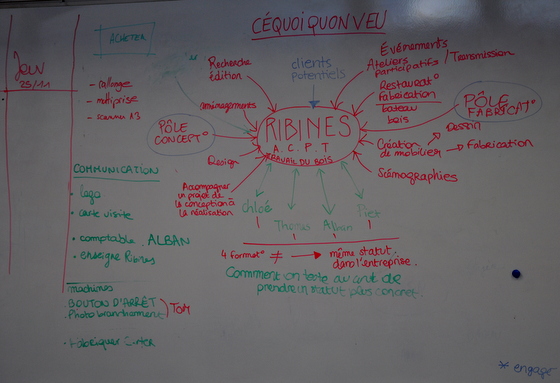 CÉQUOIQUONVEU
JEUV
25/11
ACHETER
- rallonge
- multiprise
- scanner A3
Recherche
édition
aménagements
PÔLE
CONCEPT°
Design
Accompagner
un projet de
la conception à
la réalisation
clients
potentiels
Événements
Ateliers
participatifs
Transmission
Restaurat°
Fabrication
bateau
bois
PÔLE
FABRICAT°
RIBINES
A.C.P.T
TRAVAIL DU BOIS
Création
de mobilier
Dessin
Fabrication
Scénographies
chloé
Thomas
Alban
Piet
4 format° ≠ → même statut
dans l'entreprise.
Comment on teste avant de
prendre un statut plus concret
COMMUNICATION
• logo
• carte visite
• comptable. ALBAN
• enseigne Ribines
machines
. BOUTON D'ARRÊT
. Photo branchement
TOM
. Fabriquer
* engagé